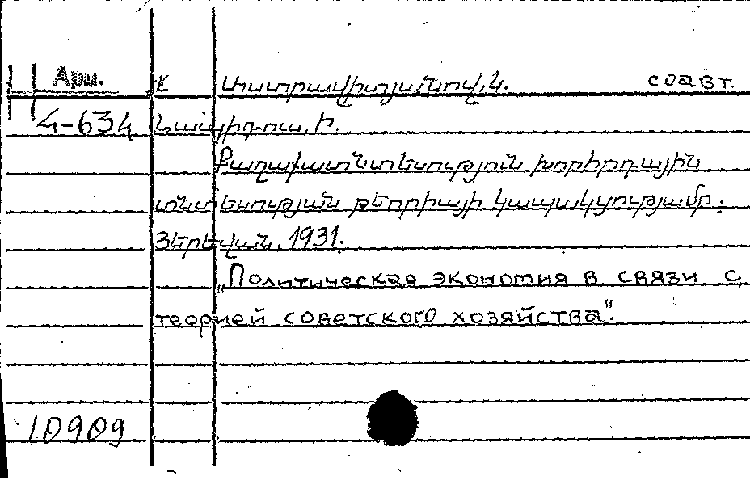 Арм. К Օստրավիտյանով, Կ. соавт.
4-634 Լապիդուս, Ի.
Քաղաքատնտեսություն խորհրդային
տնտեսության թեորիայի կապակցությամբ.
Յերեվան, 1931.
„Политическая экономия в связи с
теорией советского хозяйства".
10909